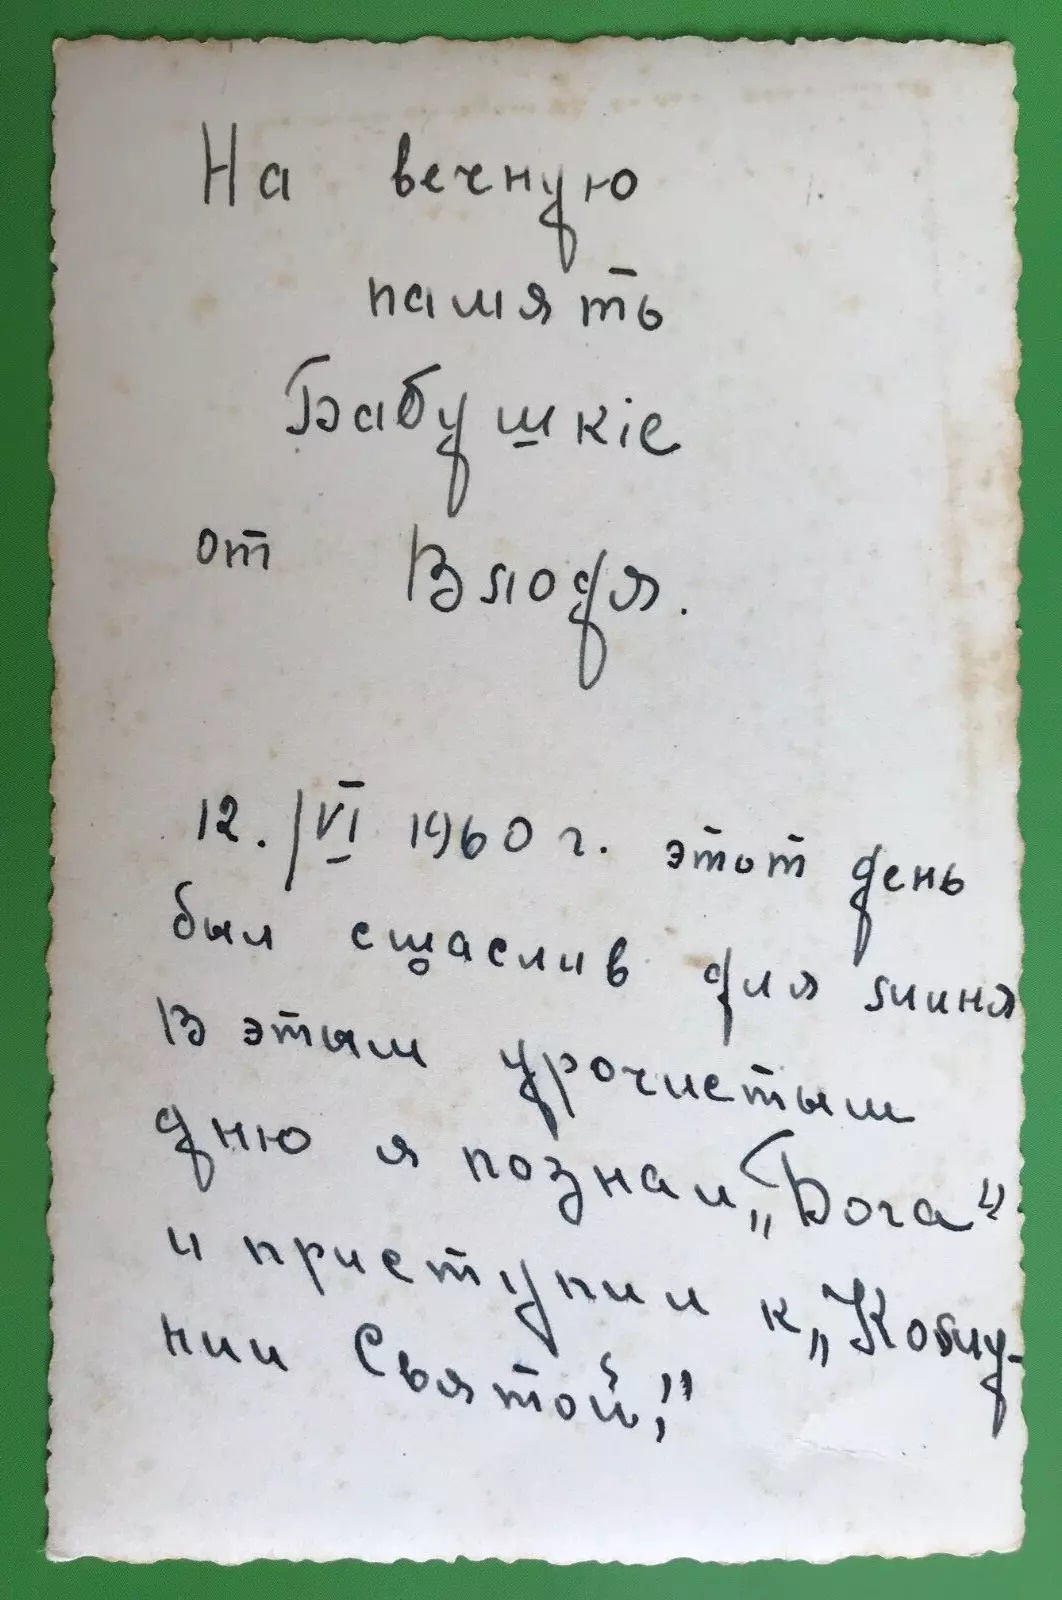 На вечную
память
Бабушкіе
от Влодя.
12./VI 1960 г. этот день
был сщаслив для миня
В этым урочистым
дню я познал „Бога“
и приступил к „Кому-
нии Святой;”